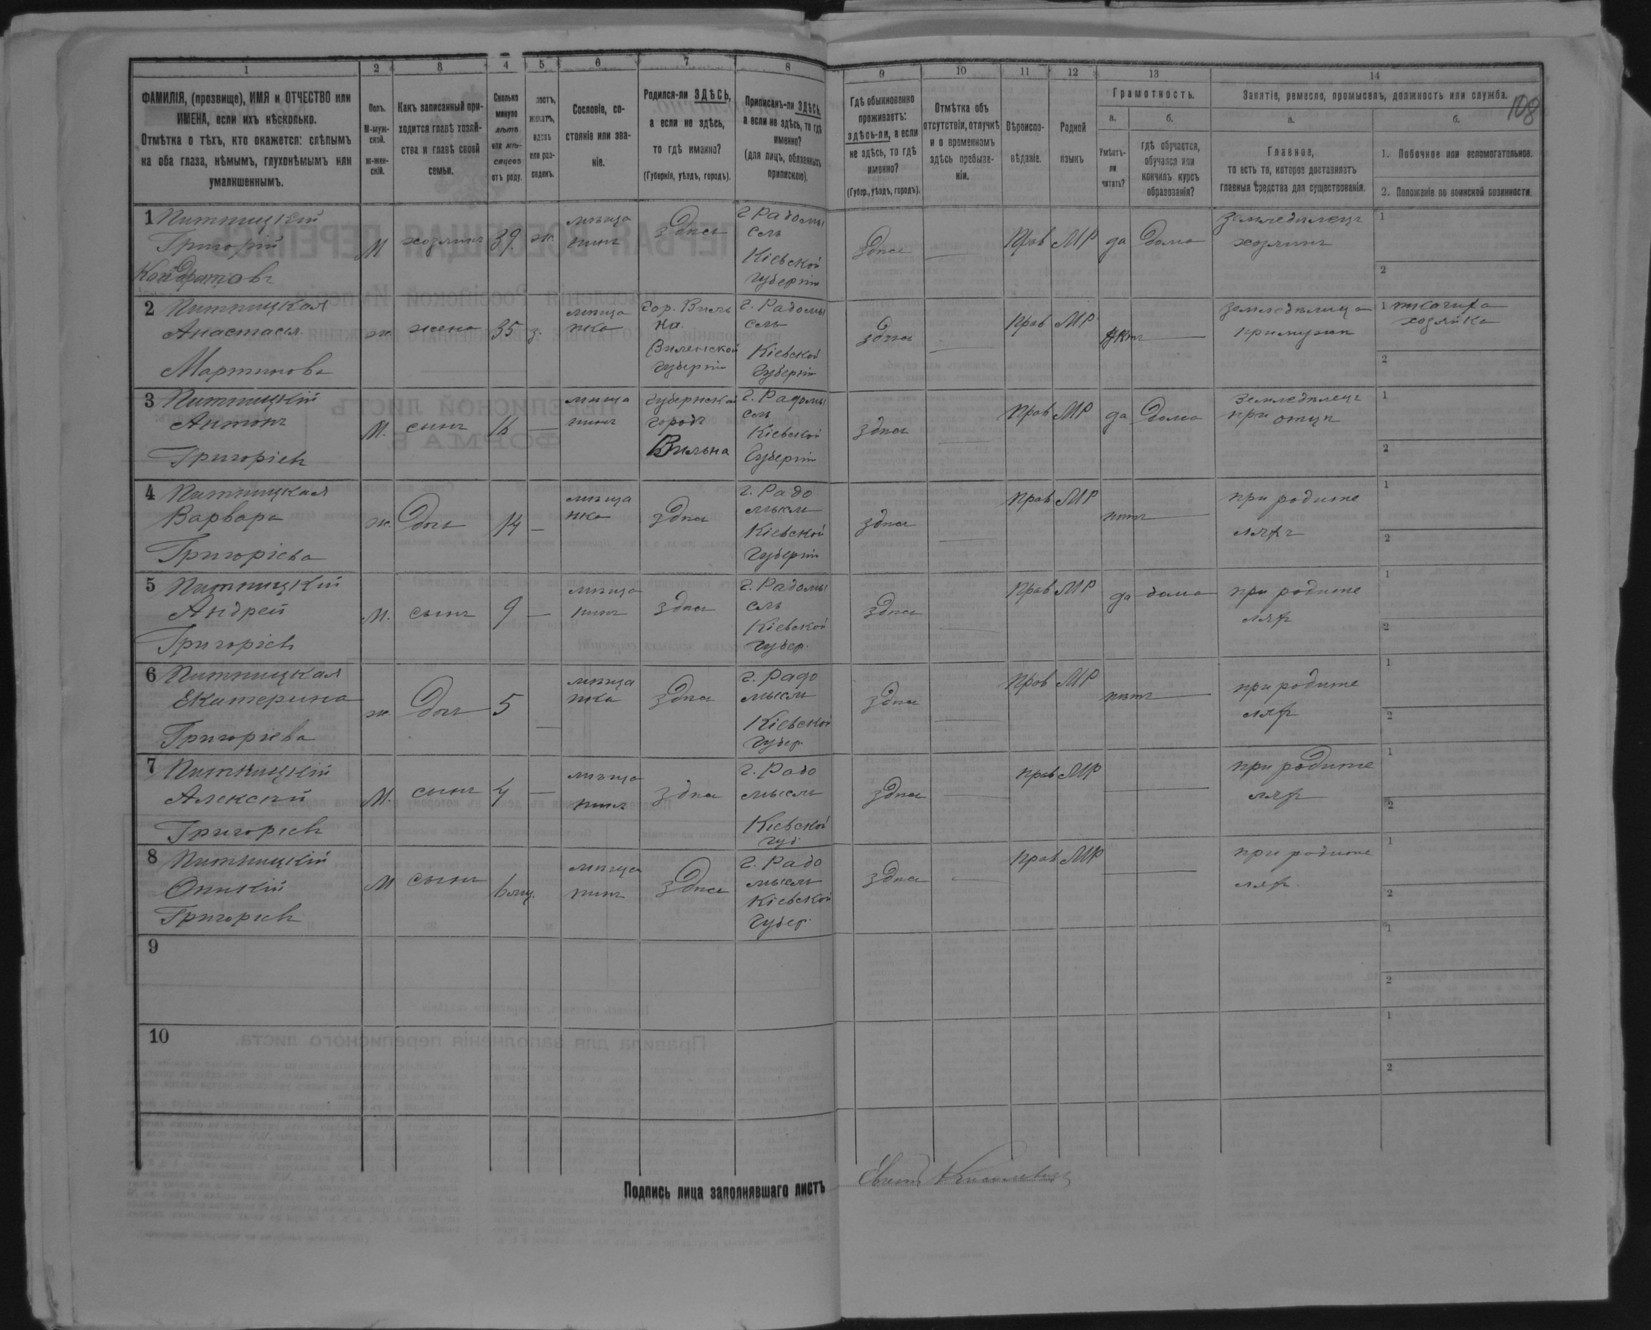 1
2
3
4
5
6
7
8
9
10
11
12
13
14
ФАМИЛІЯ, (прозвище), ИМЯ и ОТЧЕСТВО или
ИМЕНА, если ихъ нѣсколько.
Отмѣтка о тѣхъ, кто окажется: слѣпымъ
на оба глаза, нѣмымъ, глухонѣмымъ или
умалишеннымъ.
Полъ.
М-муж-
ской.
ж-жен-
скій.
Какъ записанный при-
ходится главѣ хозяй-
ства и главѣ своей
семьи.
Сколько
минуло
лѣтъ
или мѣ-
сяцевъ
отъ роду.
Сословіе, со-
стояніе или зва-
ніе.
Родился-ли ЗДѢСЬ,
а если не здѣсь,
то гдѣ именно?
(Губернія, уѣздъ, городъ).
Приписанъ-ли ЗДѢСЬ,
а если не здѣсь, то гдѣ
именно?
(для лицъ, обязанныхъ
припискою).
Гдѣ обыкновенно
проживаетъ:
здѣсь-ли, а если
не здѣсь, то гдѣ
именно?
(Губер., уѣздъ, городъ).
Отмѣтка объ
отсутствіи, отлучкѣ
и о временномъ
здѣсь пребыва-
ніи.
Вѣроиспо-
вѣданіе.
Родной
языкъ
Грамотность.
а.
Умѣетъ-
ли
читать?
б.
гдѣ обучается,
обучался или
кончилъ курсъ
образованія?
Занятіе, ремесло, промыселъ, должность или служба.
108
а.
Главное,
то есть то, которое доставляетъ
главныя средства для существованія.
б.
1. Побочное или вспомогательное.
2. Положеніе по воинской повинности.
1 Пятницкій
Григорій
Кондратовъ
М
хозяинъ
39
ж
мѣща
нинъ
Здѣсь
г. Радомы
сль
Кіевской
губерніи
Здѣсь
Прав
МР
да
дома
земледѣлецъ
хозяинъ
1
2
2 Пятницкая
Анастасія
Мартинова
ж.
жена
35
мѣща
нка
Гор. Виль
на
Виленской
губерніи
г. Радомы
сль
Кіевской
Губерніи
здѣсь
Прав
МР
нѣтъ
земледѣлица
при мужѣ
1
хозяйка
2
3 Пятницкій
Антонъ
Григоріевъ
М.
сынъ
16
мѣща
нинъ
Губернской
городъ
Вильна
г. Радомы
сль
Кіевской
Губерніи
здѣсь
Прав
МР
да
Дома
земледѣлецъ
при отцѣ
1
2
4 Пятницкая
Варвара
Григоріева
ж.
Дочь
14
мѣща
нка
здѣсь
г. Радо
мысль
Кіевской
Губерніи
здѣсь
Прав
МР
нѣтъ
при родите
ляхъ
1
2
5 Пятницкій
Андрей
Григоріевъ
М.
сынъ
9
мѣща
нинъ
здѣсь
г. Радомы
сль
Кіевской
губер.
здѣсь
Прав
МР
да
дома
при родите
ляхъ
1
2
6 Пятницкая
Екатерина
Григоріева
ж.
Дочь
5
мѣща
нка
здѣсь
г. Радо
мысль
Кіевской
губер.
здѣсь
Прав
МР
нѣтъ
при родите
ляхъ
1
2
7 Пятницкій
Алексѣй
Григоріевъ
М.
сынъ
4
мѣща
нинъ
здѣсь
г. Радо
мысль
Кіевской
губ
здѣсь
прав
МР
при родите
ляхъ
1
2
8 Пятницкій
Григоріевъ
М
сынъ
6 мц.
мѣща
нинъ
здѣсь
г. Радо
мысль
Кіевской
губер.
здѣсь
Прав
МР
при родите
ляхъ
1
2
9
1
2
10
1
2
Подпись лица заполнявшаго листъ